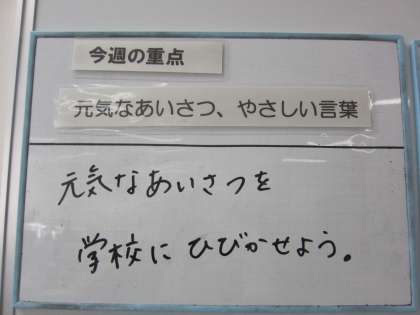 今週の重点
元気なあいさつ、やさしい言葉
元気なあいさつを
学校にひびかせよう。